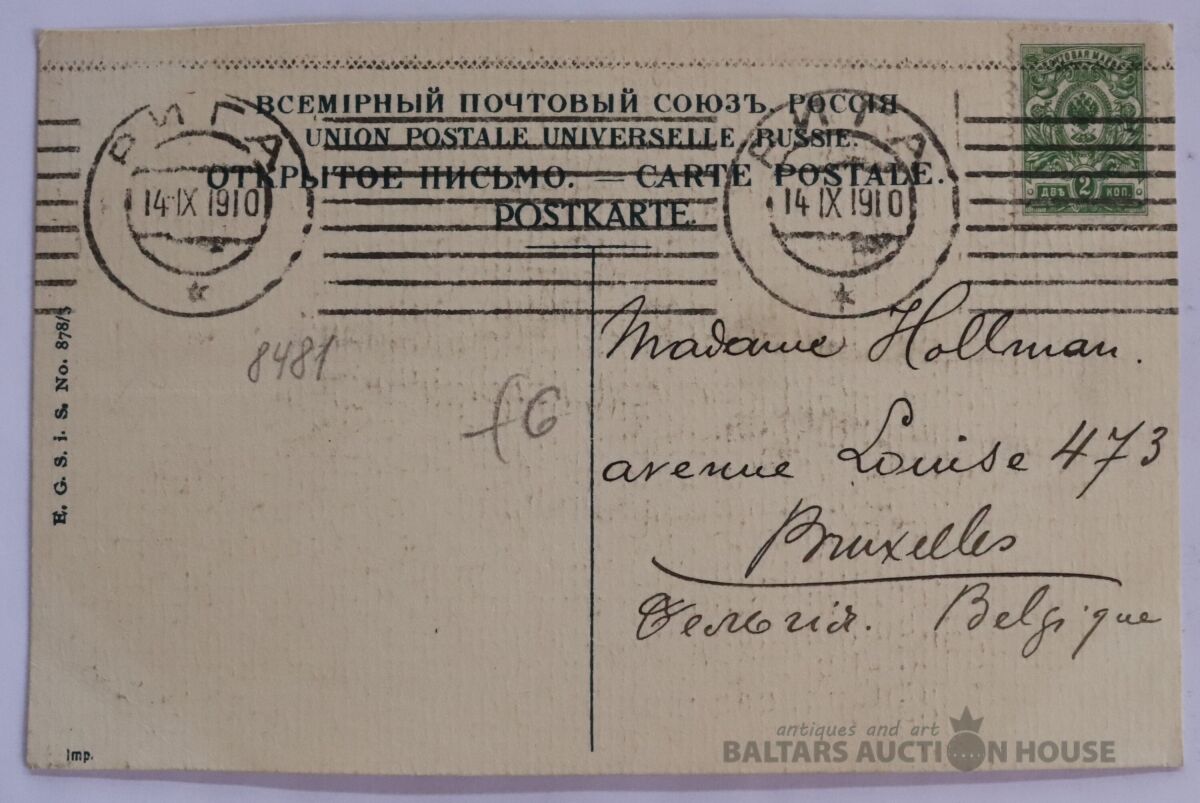 ВСЕМІРНЫЙ ПОЧТОВЫЙ СОЮЗЪ. РОССІЯ
UNION POSTALE UNIVERSELLE RUSSIE.
ОТКРЫТОЕ ПИСЬМО. — CARTE POSTALE.
POSTKARTE.
РИГА
14 IX 1910
РИГА
14 IX 1910
ПОЧТОВАЯ МАРКА
ДВѢ 2 КОП.
E. G. S. i. S. No. 878/5
8481
f6
Madame Hollman.
avenue Louise 473
Bruxelles
Бельгія. Belgique
Imp.
antiques and art
BALTARS AUCTION HOUSE